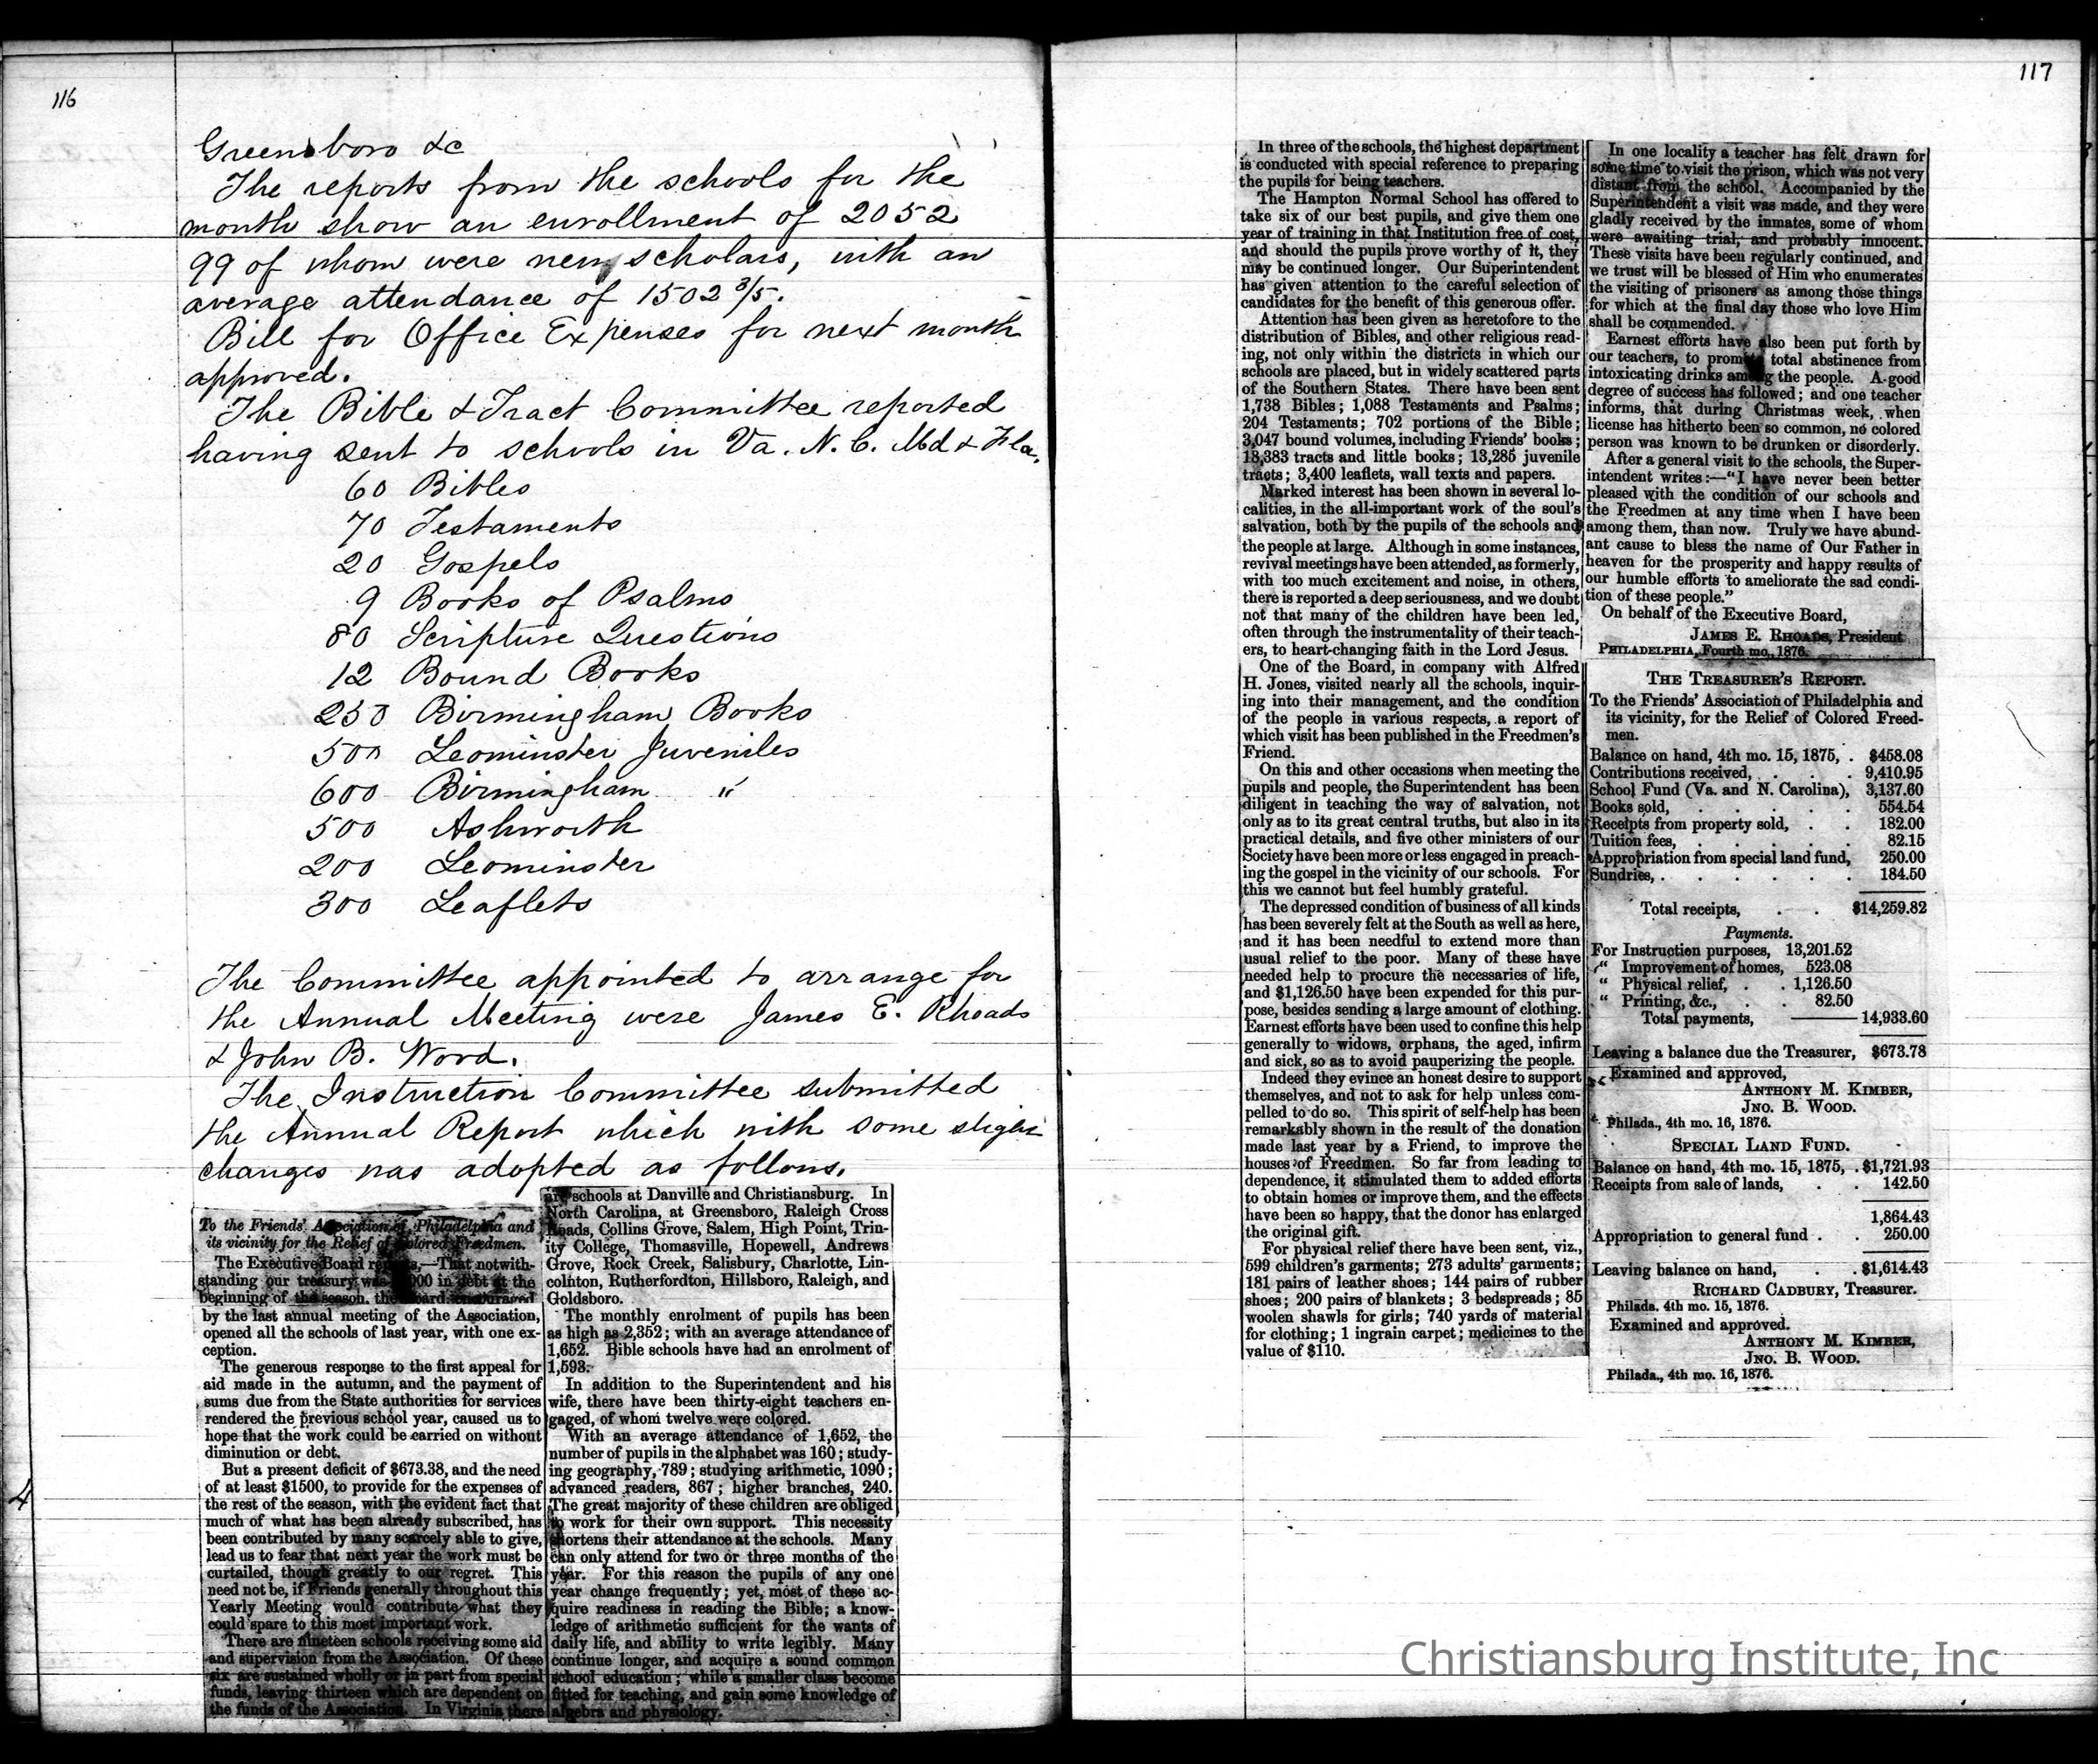 116
Greensboro &c
The reports from the schools for the
month show an enrollment of 2052
99 of whom were new scholars, with an
average attendance of 1502 3/5.
Bill for Office Expenses for next month
approved.
The Bible & Tract Committee reported
having sent to schools in Va. N. C. Md & Fla.
60 Bibles
70 Testaments
20 Gospels
9 Books of Psalms
80 Scripture Questions
12 Bound Books
250 Birmingham Books
500 Leominster Juveniles
600 Birmingham "
500 Ashworth
200 Leominster
300 Leaflets
The Committee appointed to arrange for
the Annual Meeting were James E. Rhoads
& John B. Wood.
The Instruction Committee submitted
the Annual Report which with some slight
changes was adopted as follows.
To the Friends' Association of Philadelphia and
its vicinity for the Relief of Colored Freedmen.
The Executive Board reports,—That notwith-
standing our treasury was 000 in debt at the
beginning of the season, the Board, encouraged
by the last annual meeting of the Association,
opened all the schools of last year, with one ex-
ception.
The generous response to the first appeal for
aid made in the autumn, and the payment of
sums due from the State authorities for services
rendered the previous school year, caused us to
hope that the work could be carried on without
diminution or debt.
But a present deficit of $673.38, and the need
of at least $1500, to provide for the expenses of
the rest of the season, with the evident fact that
much of what has been already subscribed, has
been contributed by many scarcely able to give,
lead us to fear that next year the work must be
curtailed, though greatly to our regret. This
need not be, if Friends generally throughout this
Yearly Meeting would contribute what they
could spare to this most important work.
There are nineteen schools receiving some aid
and supervision from the Association. Of these
six are sustained wholly or in part from special
funds, leaving thirteen which are dependent on
the funds of the Association. In Virginia there
are schools at Danville and Christiansburg. In
North Carolina, at Greensboro, Raleigh Cross
Roads, Collins Grove, Salem, High Point, Trin-
ity College, Thomasville, Hopewell, Andrews
Grove, Rock Creek, Salisbury, Charlotte, Lin-
colnton, Rutherfordton, Hillsboro, Raleigh, and
Goldsboro.
The monthly enrolment of pupils has been
as high as 2,352; with an average attendance of
1,652. Bible schools have had an enrolment of
1,593.
In addition to the Superintendent and his
wife, there have been thirty-eight teachers en-
gaged, of whom twelve were colored.
With an average attendance of 1,652, the
number of pupils in the alphabet was 160; study-
ing geography, 789; studying arithmetic, 1090;
advanced readers, 867; higher branches, 240.
The great majority of these children are obliged
to work for their own support. This necessity
shortens their attendance at the schools. Many
can only attend for two or three months of the
year. For this reason the pupils of any one
year change frequently; yet, most of these ac-
quire readiness in reading the Bible; a know-
ledge of arithmetic sufficient for the wants of
daily life, and ability to write legibly. Many
continue longer, and acquire a sound common
school education; while a smaller class become
fitted for teaching, and gain some knowledge of
algebra and physiology.
117
In three of the schools, the highest department
is conducted with special reference to preparing
the pupils for being teachers.
The Hampton Normal School has offered to
take six of our best pupils, and give them one
year of training in that Institution free of cost,
and should the pupils prove worthy of it, they
may be continued longer. Our Superintendent
has given attention to the careful selection of
candidates for the benefit of this generous offer.
Attention has been given as heretofore to the
distribution of Bibles, and other religious read-
ing, not only within the districts in which our
schools are placed, but in widely scattered parts
of the Southern States. There have been sent
1,738 Bibles; 1,088 Testaments and Psalms;
204 Testaments; 702 portions of the Bible;
3,047 bound volumes, including Friends' books;
13,383 tracts and little books; 13,285 juvenile
tracts; 3,400 leaflets, wall texts and papers.
Marked interest has been shown in several lo-
calities, in the all-important work of the soul's
salvation, both by the pupils of the schools and
the people at large. Although in some instances,
revival meetings have been attended, as formerly,
with too much excitement and noise, in others,
there is reported a deep seriousness, and we doubt
not that many of the children have been led,
often through the instrumentality of their teach-
ers, to heart-changing faith in the Lord Jesus.
One of the Board, in company with Alfred
H. Jones, visited nearly all the schools, inquir-
ing into their management, and the condition
of the people in various respects, a report of
which visit has been published in the Freedmen's
Friend.
On this and other occasions when meeting the
pupils and people, the Superintendent has been
diligent in teaching the way of salvation, not
only as to its great central truths, but also in its
practical details, and five other ministers of our
Society have been more or less engaged in preach-
ing the gospel in the vicinity of our schools. For
this we cannot but feel humbly grateful.
The depressed condition of business of all kinds
has been severely felt at the South as well as here,
and it has been needful to extend more than
usual relief to the poor. Many of these have
needed help to procure the necessaries of life,
and $1,126.50 have been expended for this pur-
pose, besides sending a large amount of clothing.
Earnest efforts have been used to confine this help
generally to widows, orphans, the aged, infirm
and sick, so as to avoid pauperizing the people.
Indeed they evince an honest desire to support
themselves, and not to ask for help unless com-
pelled to do so. This spirit of self-help has been
remarkably shown in the result of the donation
made last year by a Friend, to improve the
houses of Freedmen. So far from leading to
dependence, it stimulated them to added efforts
to obtain homes or improve them, and the effects
have been so happy, that the donor has enlarged
the original gift.
For physical relief there have been sent, viz.,
599 children's garments; 273 adults' garments;
181 pairs of leather shoes; 144 pairs of rubber
shoes; 200 pairs of blankets; 3 bedspreads; 85
woolen shawls for girls; 740 yards of material
for clothing; 1 ingrain carpet; medicines to the
value of $110.
In one locality a teacher has felt drawn for
some time to visit the prison, which was not very
distant from the school. Accompanied by the
Superintendent a visit was made, and they were
gladly received by the inmates, some of whom
were awaiting trial, and probably innocent.
These visits have been regularly continued, and
we trust will be blessed of Him who enumerates
the visiting of prisoners as among those things
for which at the final day those who love Him
shall be commended.
Earnest efforts have also been put forth by
our teachers, to promote total abstinence from
intoxicating drinks among the people. A good
degree of success has followed; and one teacher
informs, that during Christmas week, when
license has hitherto been so common, no colored
person was known to be drunken or disorderly.
After a general visit to the schools, the Super-
intendent writes:—"I have never been better
pleased with the condition of our schools and
the Freedmen at any time when I have been
among them, than now. Truly we have abund-
ant cause to bless the name of Our Father in
heaven for the prosperity and happy results of
our humble efforts to ameliorate the sad condi-
tion of these people."
On behalf of the Executive Board,
JAMES E. RHOADS, President
PHILADELPHIA, Fourth mo., 1876.
THE TREASURER'S REPORT.
To the Friends' Association of Philadelphia and
its vicinity, for the Relief of Colored Freed-
men.
Balance on hand, 4th mo. 15, 1875, . $458.08
Contributions received, . . . 9,410.95
School Fund (Va. and N. Carolina), 3,137.60
Books sold, . . . . . 554.54
Receipts from property sold, . . 182.00
Tuition fees, . . . . . 82.15
Appropriation from special land fund, 250.00
Sundries, . . . . . . 184.50
Total receipts, . . $14,259.82
Payments.
For Instruction purposes, 13,201.52
" Improvement of homes, 523.08
" Physical relief, . . 1,126.50
" Printing, &c., . . 82.50
Total payments, 14,933.60
Leaving a balance due the Treasurer, $673.78
Examined and approved,
ANTHONY M. KIMBER,
JNO. B. WOOD.
Philada., 4th mo. 16, 1876.
SPECIAL LAND FUND.
Balance on hand, 4th mo. 15, 1875, . $1,721.93
Receipts from sale of lands, . . 142.50
1,864.43
Appropriation to general fund . . 250.00
Leaving balance on hand, . . $1,614.43
RICHARD CADBURY, Treasurer.
Philada. 4th mo. 15, 1876.
Examined and approved.
ANTHONY M. KIMBER,
JNO. B. WOOD.
Philada., 4th mo. 16, 1876.
4
Christiansburg Institute, Inc